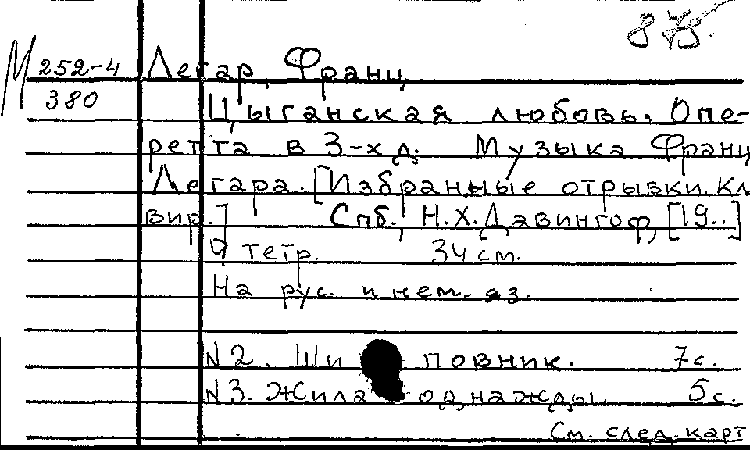 875.
М 252-4 Легар, Франц
380 Цыганская любовь. Опе-
ретта в 3-х д. Музыка Франц
Легара. [Избранные отрывки. Кл
вир.] Спб., Н.Х. Давингоф, [19..]
9 тетр. 34 см.
На рус. и нем. яз.
N2. Шиповник. 7с.
N3. Жила однажды. 5с.
См. след. карт